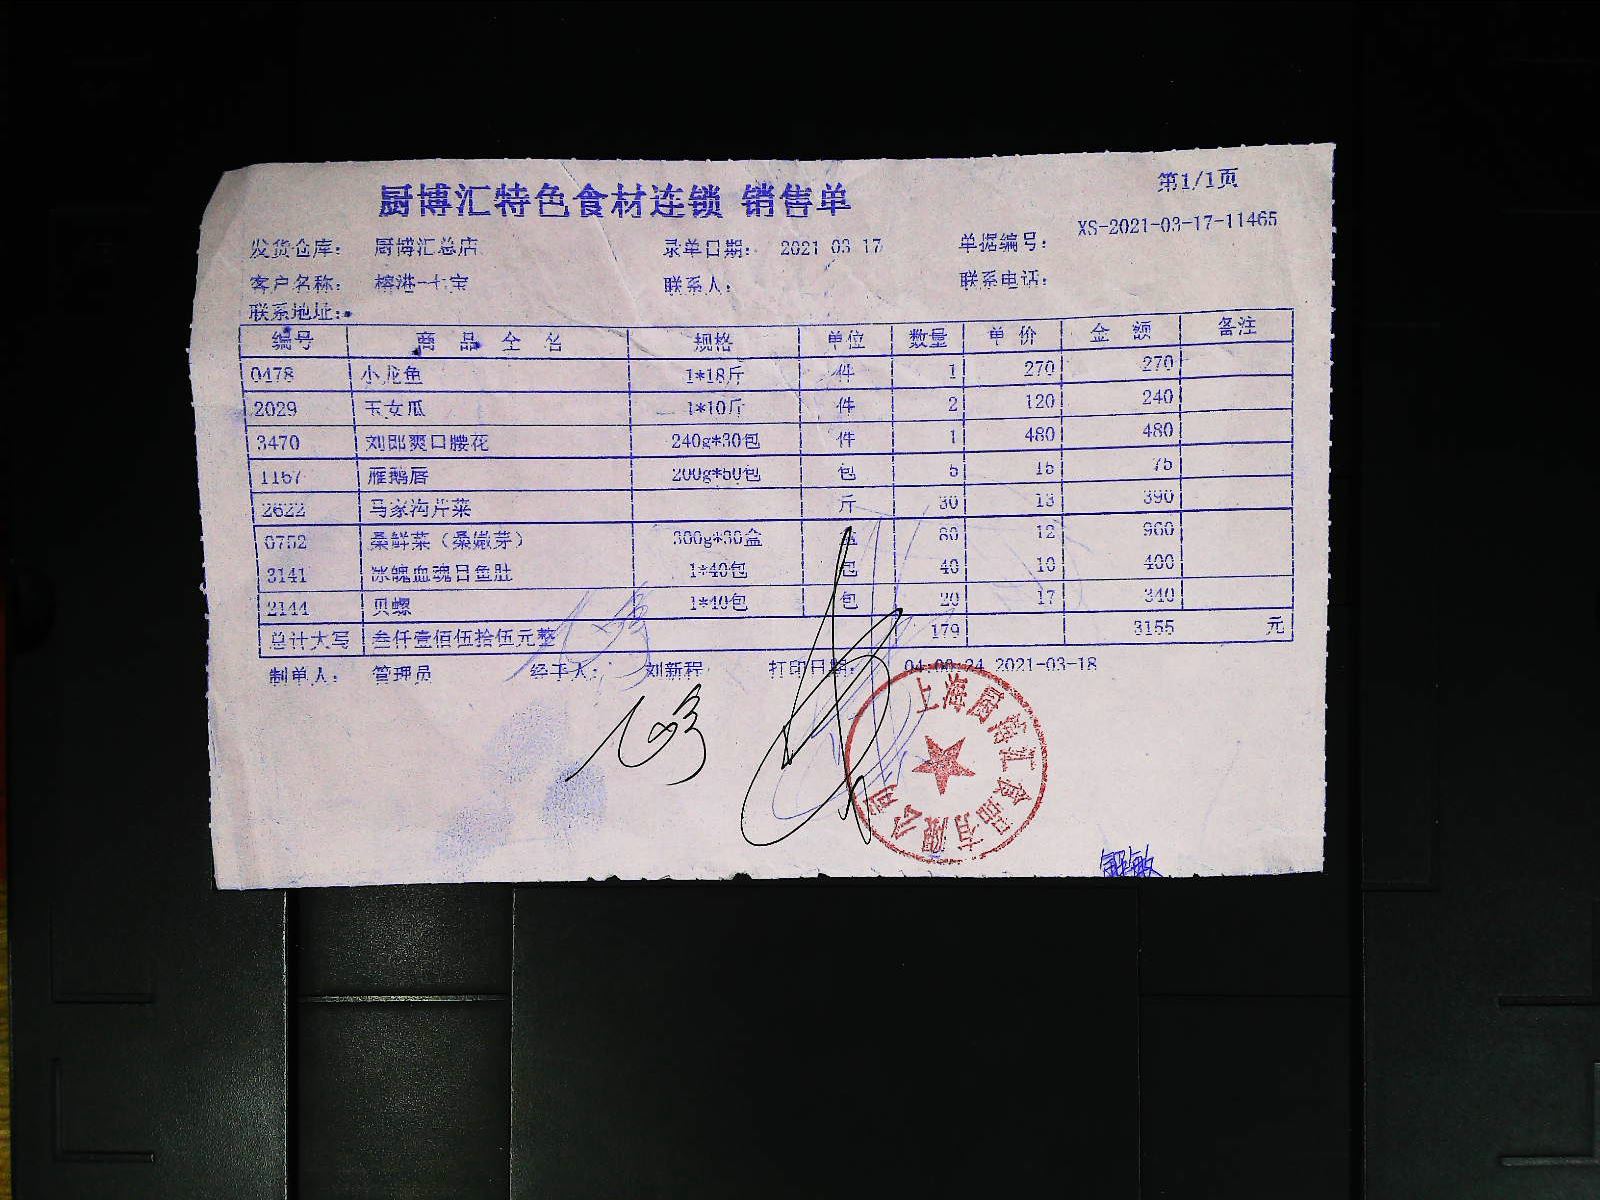 厨博汇特色食材连锁 销售单
第1/1页
发货仓库： 厨博汇总店 录单日期： 2021 03 17 单据编号： XS-2021-03-17-11465
客户名称： 榕港-七宝 联系人： 联系电话：
联系地址：
编号 商 品 全 名 规格 单位 数量 单 价 金 额 备注
0478 小龙鱼 1*18斤 件 1 270 270
2029 玉女瓜 1*10斤 件 2 120 240
3470 刘郎爽口腰花 240g*30包 件 1 480 480
1167 雁鹅唇 200g*50包 包 5 15 75
2622 马家沟芹菜 斤 30 13 390
0752 桑鲜菜（桑嫩芽） 300g*30盒 80 12 960
3141 冰魄血魂目鱼肚 1*40包 包 40 10 400
2144 贝螺 1*40包 包 20 17 340
总计大写 叁仟壹佰伍拾伍元整 179 3155 元
制单人： 管理员 经手人： 刘新程 打印日期： 04:00:24 2021-03-18
上海厨博汇食品有限公司